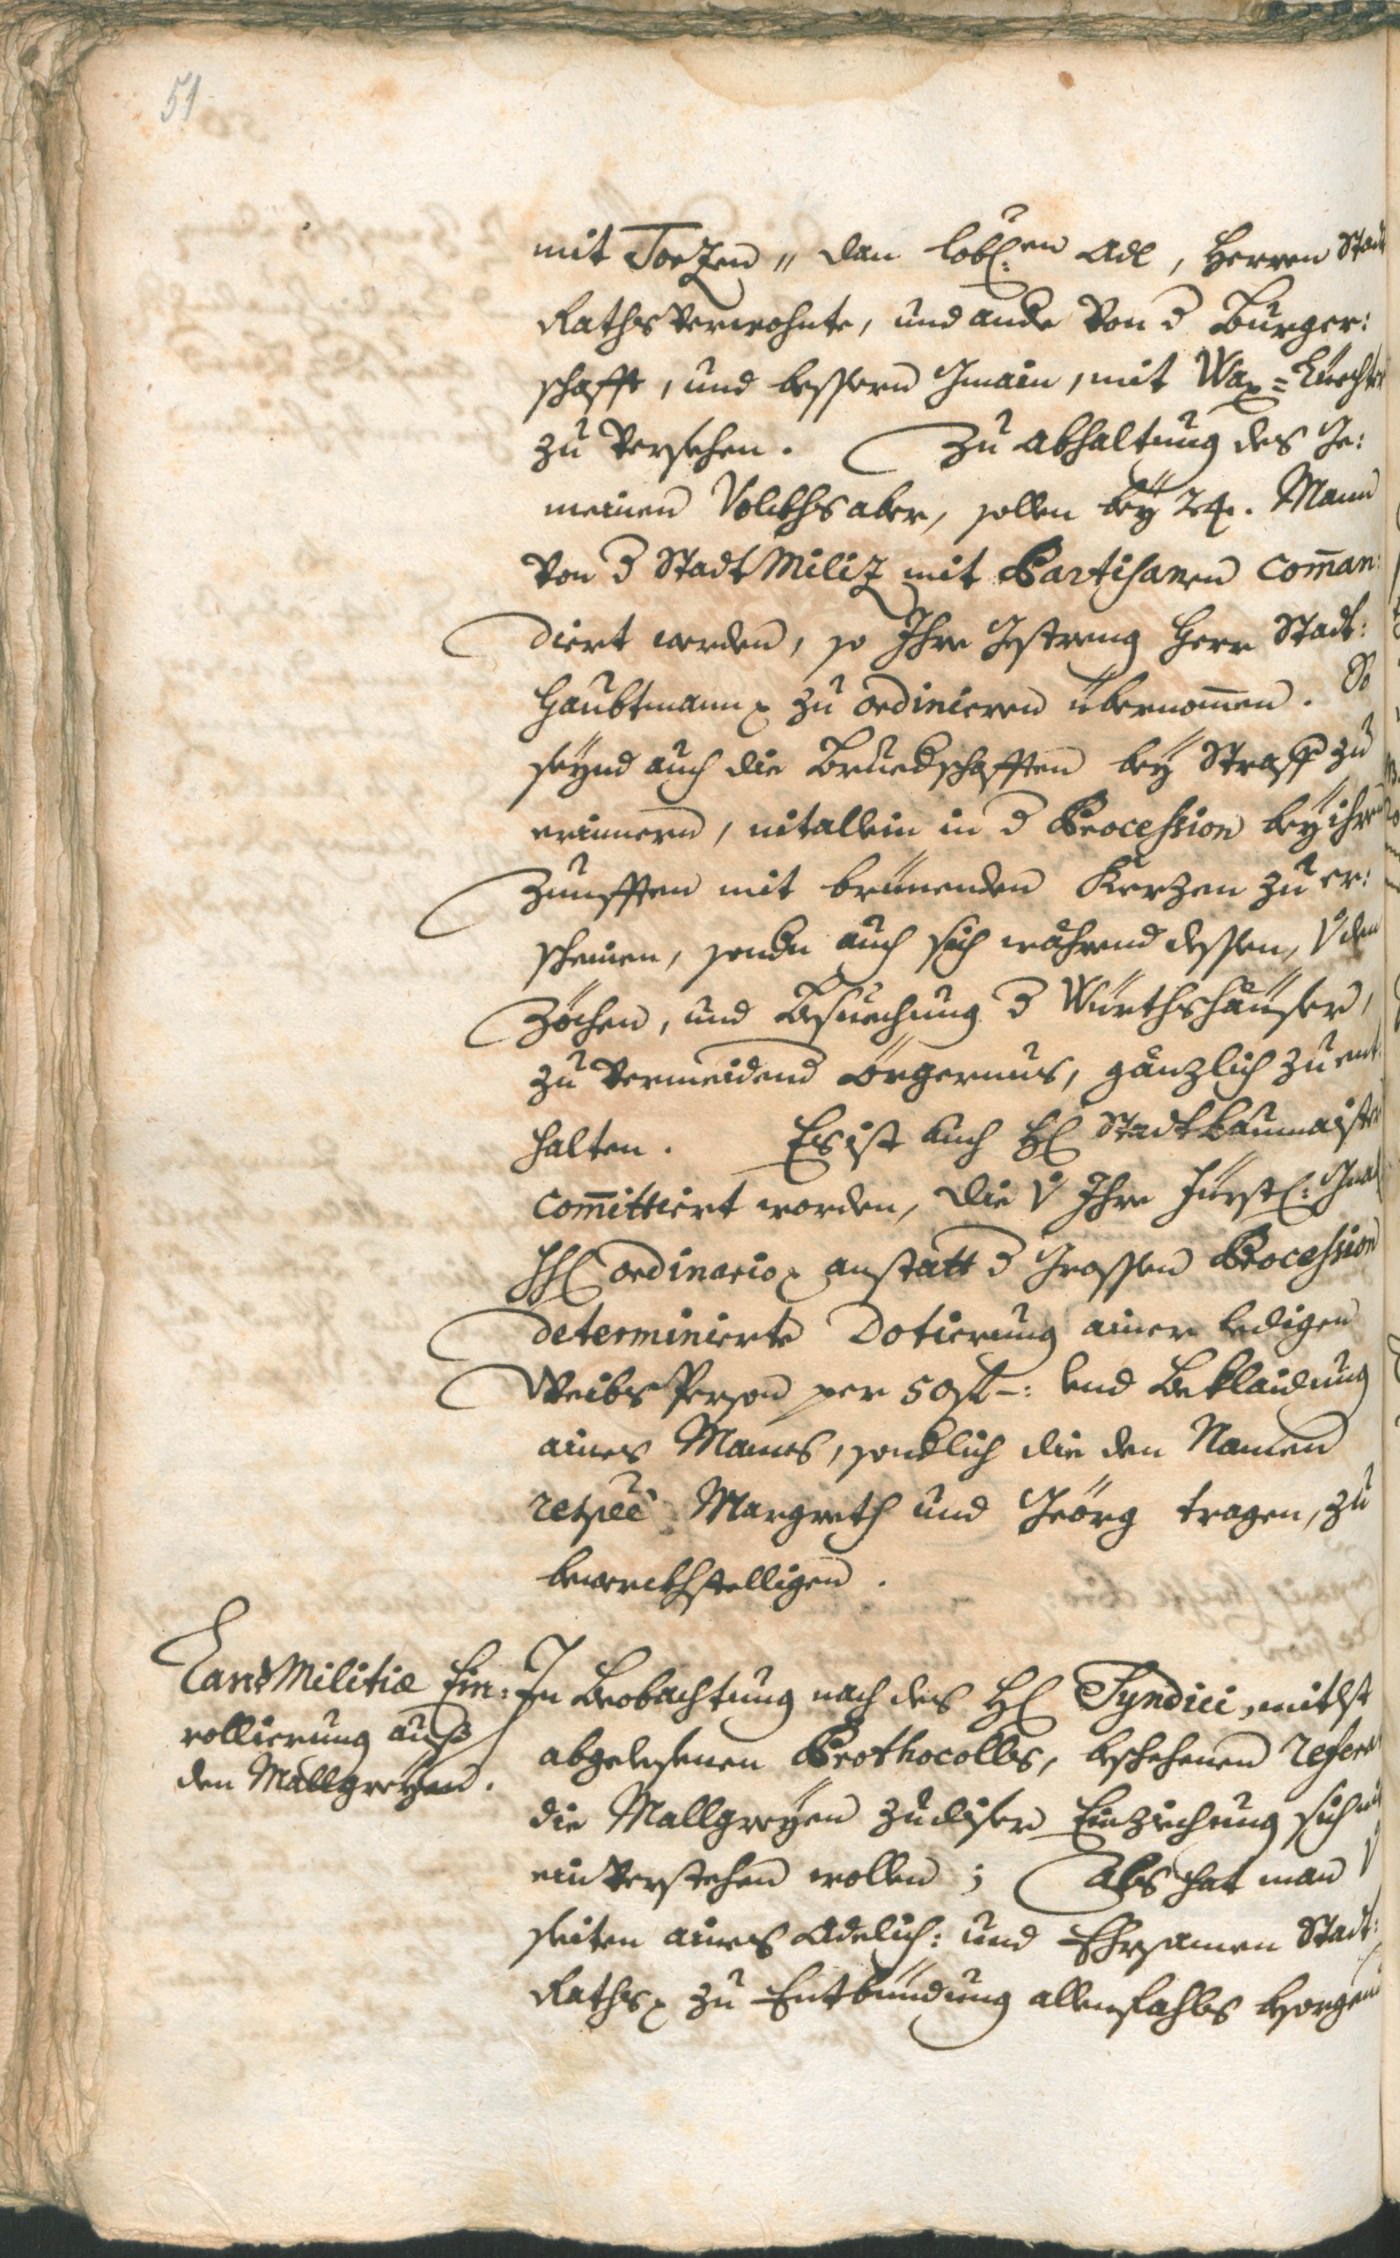 51
mit Torzen, dan lobl:en Adl, Herren Stadt
Raths verwohnte, und ande von d Burger:
schafft, und bessern Gmain, mit Wax=Liechter
zu versehen. Zu abhaltung des Ge:
meinen Volckhs aber, sollen bey 24. Mann
von d Stadt Miliz mit Partisanen com̄an:
diert werden, so Ihre Gestreng Herr Stadt:
Haubtmann zu ordinieren übernom̄en. So
seynd auch die Bruedschafften bey Straff zu
erinnern, nit allein in d Procession bey ihren
Zunfften mit brinenden Kerzen zu er:
scheinen, sonde auch sich während dessen, v den
Zöchen, und Besuechung d Würthshäuser,
zu vermeidend örgernus, gänzlich zu ent
halten. Es ist auch H Stadt Baumaister
com̄ittiert worden, die v Ihro Fürstl: Gnad
H ordinario anstatt d Grossen Procession
determinierte Dotierung ainer ledigen
Weibs Person per 50 fl –: und Beklaidung
aines Manns, sondlich die den Namen
respee Margreth und Geörg tragen, zu
bewerckhstelligen.
Land Militiæ Ein:
rollierung auß
den Mallgreyen.
In Beobachtung nach des H Syndici, mitlst
abgelesenen Prothocolls, beschehenen refera
die Mallgreyen zu diser Einziehung sich nit
einverstehen wollen; Als hat man v
seiten aines Adelich: und Ehrsamen Stadt:
Raths zu Entbindung allenfahls besorgend